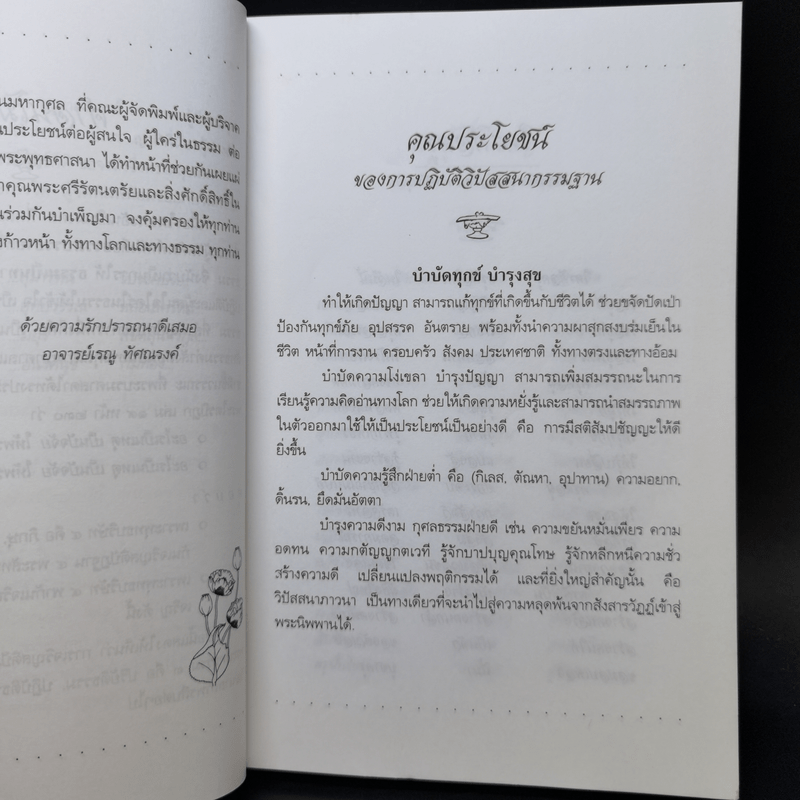 นมหากุศล ที่คณะผู้จัดพิมพ์และผู้บริจาค
ประโยชน์ต่อผู้สนใจ ผู้ใคร่ในธรรม ต่อ
พระพุทธศาสนา ได้ทำหน้าที่ช่วยกันเผยแผ่
คุณพระศรีรัตนตรัยและสิ่งศักดิ์สิทธิ์ใน
ร่วมกันบำเพ็ญมา จงคุ้มครองให้ทุกท่าน
ก้าวหน้า ทั้งทางโลกและทางธรรม ทุกท่าน
ด้วยความรักปรารถนาดีเสมอ
อาจารย์เรณู ทัศณรงค์
คุณประโยชน์
ของการปฏิบัติวิปัสสนากรรมฐาน
บำบัดทุกข์ บำรุงสุข
ทำให้เกิดปัญญา สามารถแก้ทุกข์ที่เกิดขึ้นกับชีวิตได้ ช่วยขจัดปัดเป่า
ป้องกันทุกข์ภัย อุปสรรค อันตราย พร้อมทั้งนำความผาสุกสงบร่มเย็นใน
ชีวิต หน้าที่การงาน ครอบครัว สังคม ประเทศชาติ ทั้งทางตรงและทางอ้อม
บำบัดความโง่เขลา บำรุงปัญญา สามารถเพิ่มสมรรถนะในการ
เรียนรู้ความคิดอ่านทางโลก ช่วยให้เกิดความหยั่งรู้และสามารถนำสมรรถภาพ
ในตัวออกมาใช้ให้เป็นประโยชน์เป็นอย่างดี คือ การมีสติสัมปชัญญะให้ดี
ยิ่งขึ้น
บำบัดความรู้สึกฝ่ายต่ำ คือ (กิเลส, ตัณหา, อุปาทาน) ความอยาก,
ดิ้นรน, ยึดมั่นอัตตา
บำรุงความดีงาม กุศลธรรมฝ่ายดี เช่น ความขยันหมั่นเพียร ความ
อดทน ความกตัญญูกตเวที รู้จักบาปบุญคุณโทษ รู้จักหลีกหนีความชั่ว
สร้างความดี เปลี่ยนแปลงพฤติกรรมได้ และที่ยิ่งใหญ่สำคัญนั้น คือ
วิปัสสนาภาวนา เป็นทางเดียวที่จะนำไปสู่ความหลุดพ้นจากสังสารวัฏฏ์เข้าสู่
พระนิพพานได้.